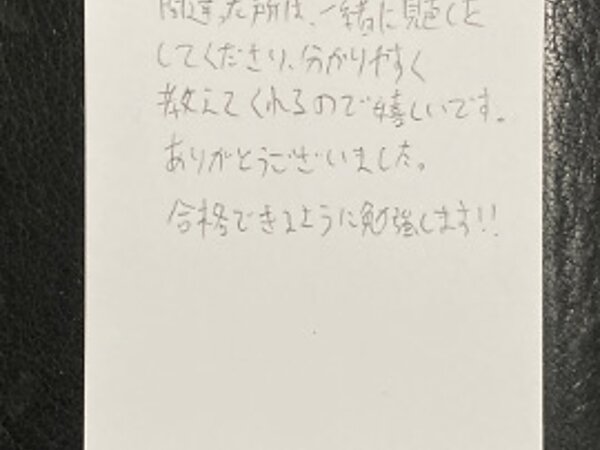 間違った所は、一緒に見直しを
してくださり、分かりやすく
教えてくれるので嬉しいです。
ありがとうございました。
合格できるように勉強します!!